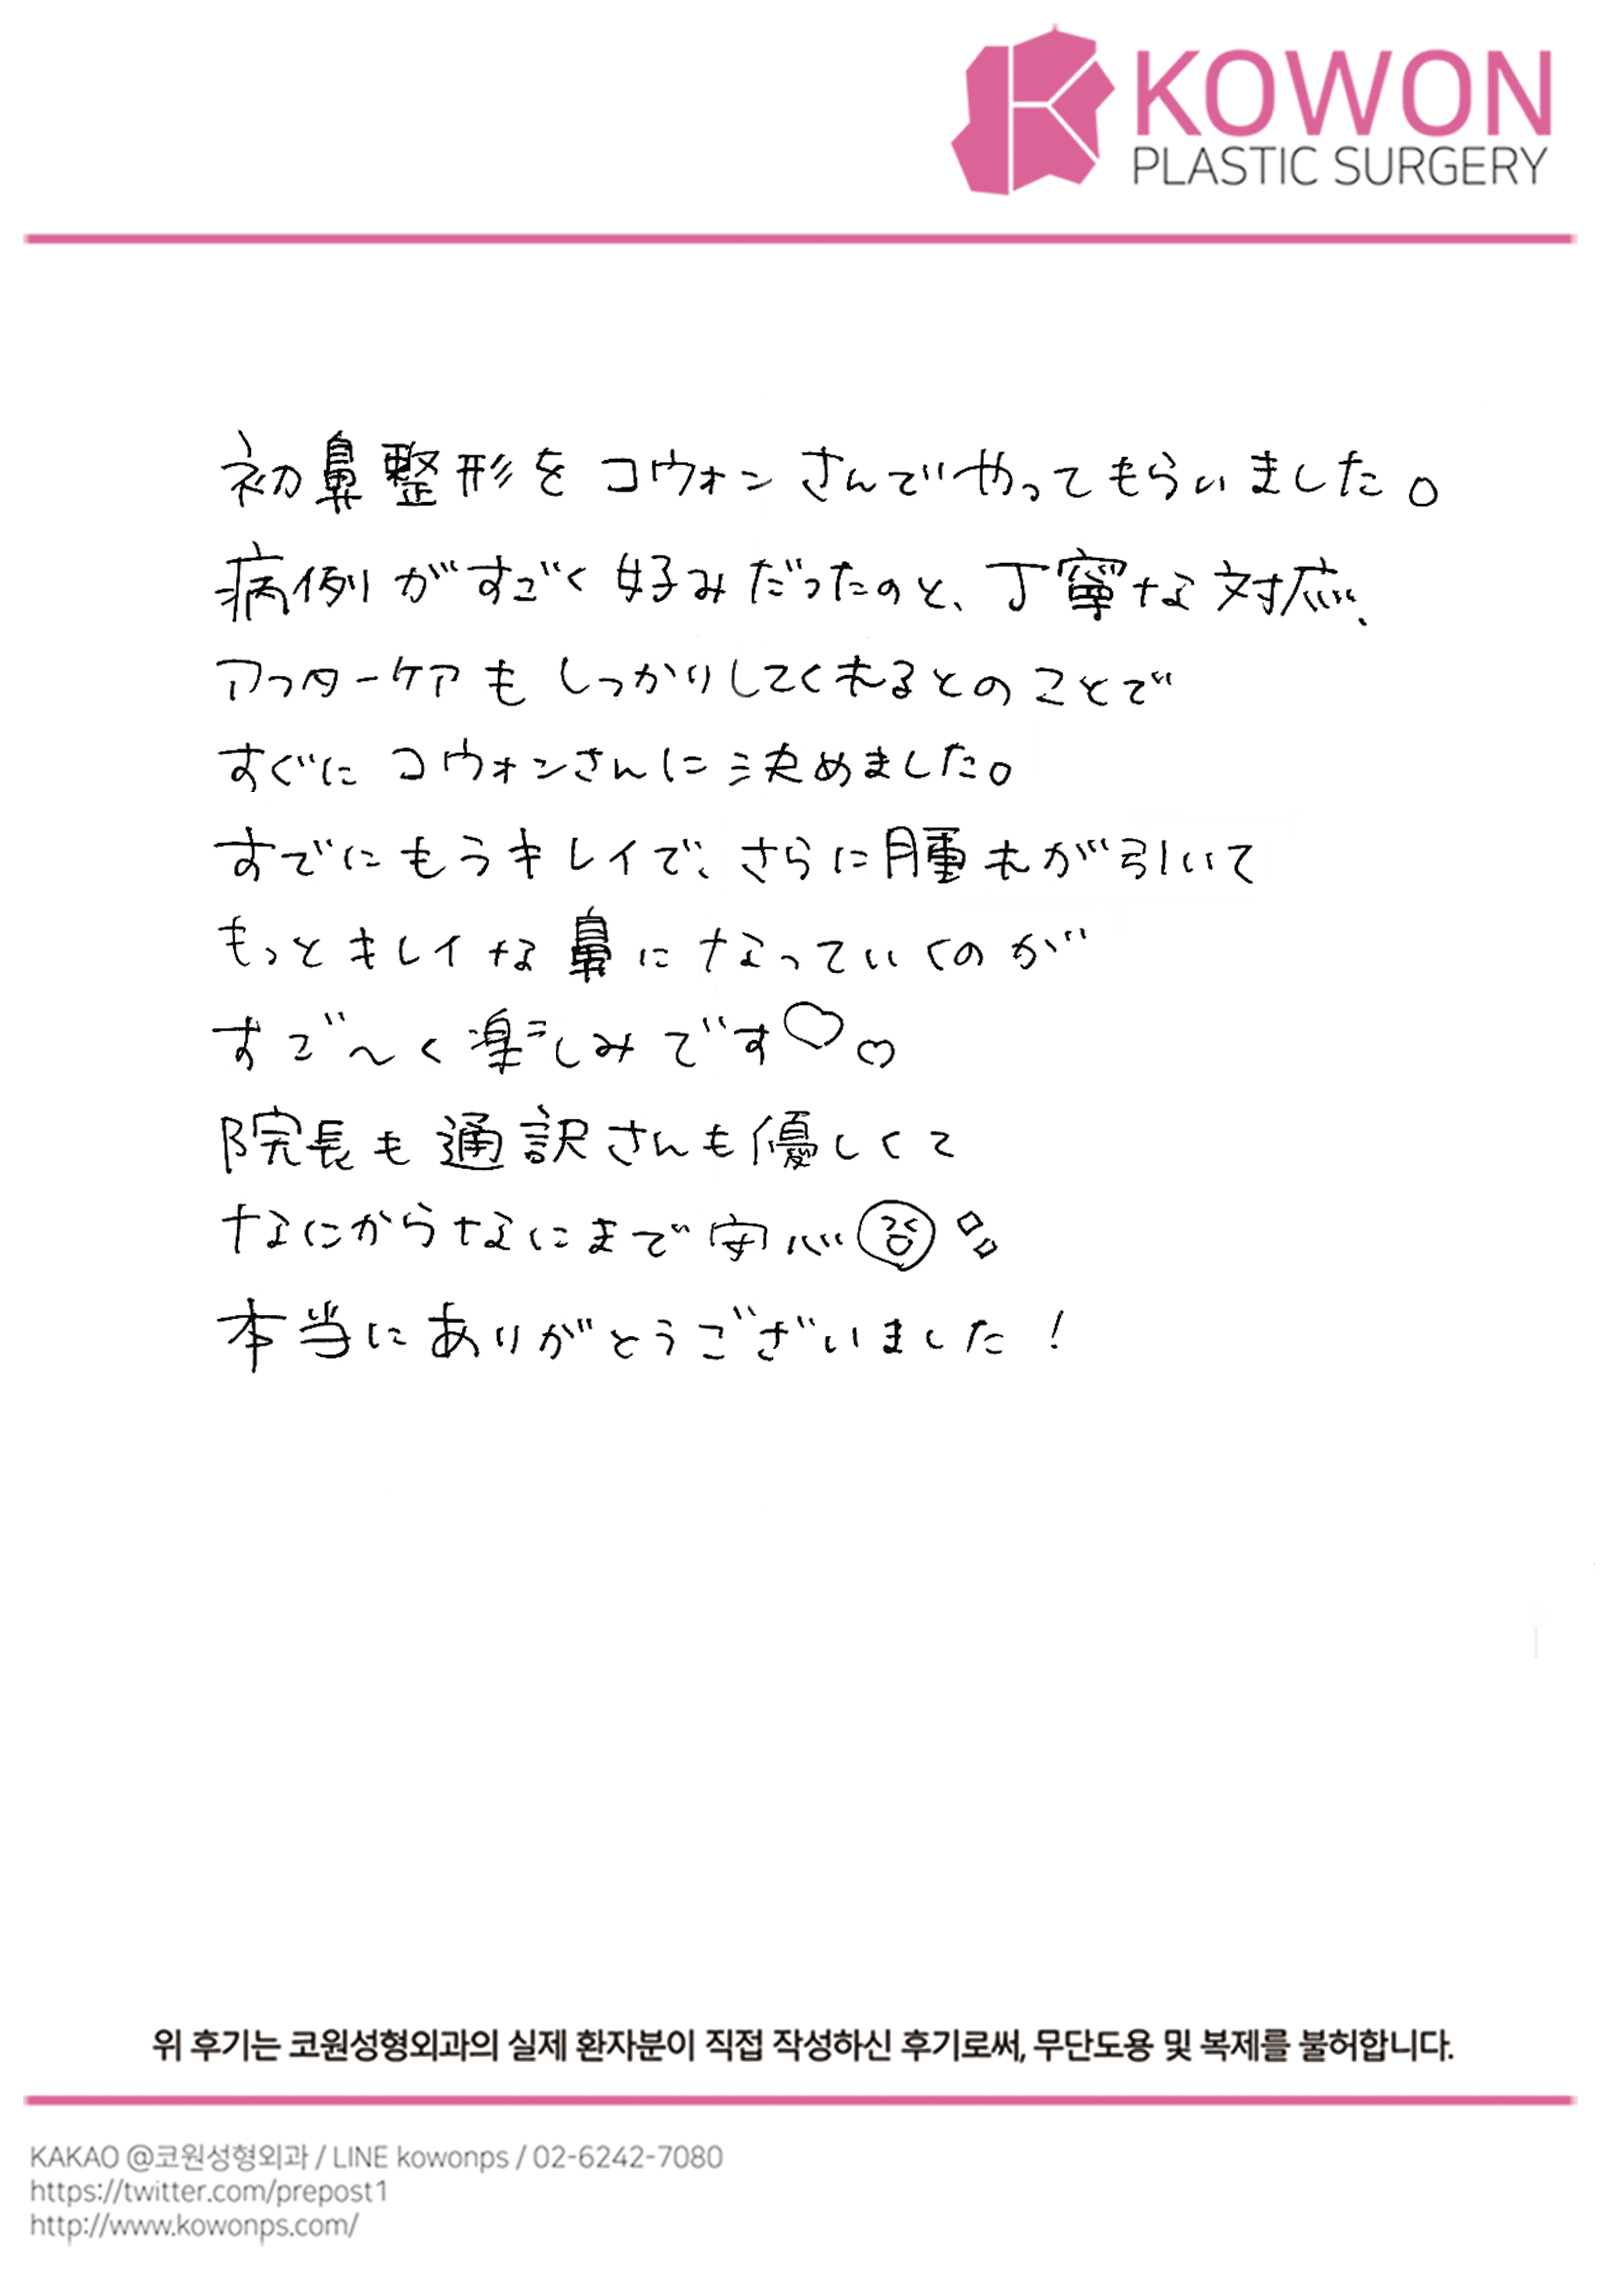 KOWON
PLASTIC SURGERY
初鼻整形をコウォンさんでやってもらいました。
病例がすごく好みだったのと、丁寧な対応、
アフターケアもしっかりしてくれるとのことで
すぐにコウォンさんに決めました。
すでにもうキレイで、さらに腫れが引いて
もっとキレイな鼻になっていくのが
すご〜く楽しみです♡♡
院長も通訳さんも優しくて
なにからなにまで安心
本当にありがとうございました！
위 후기는 코원성형외과의 실제 환자분이 직접 작성하신 후기로써, 무단도용 및 복제를 불허합니다.
KAKAO @코원성형외과 / LINE kowonps / 02-6242-7080
https://twitter.com/prepost1
http://www.kowonps.com/